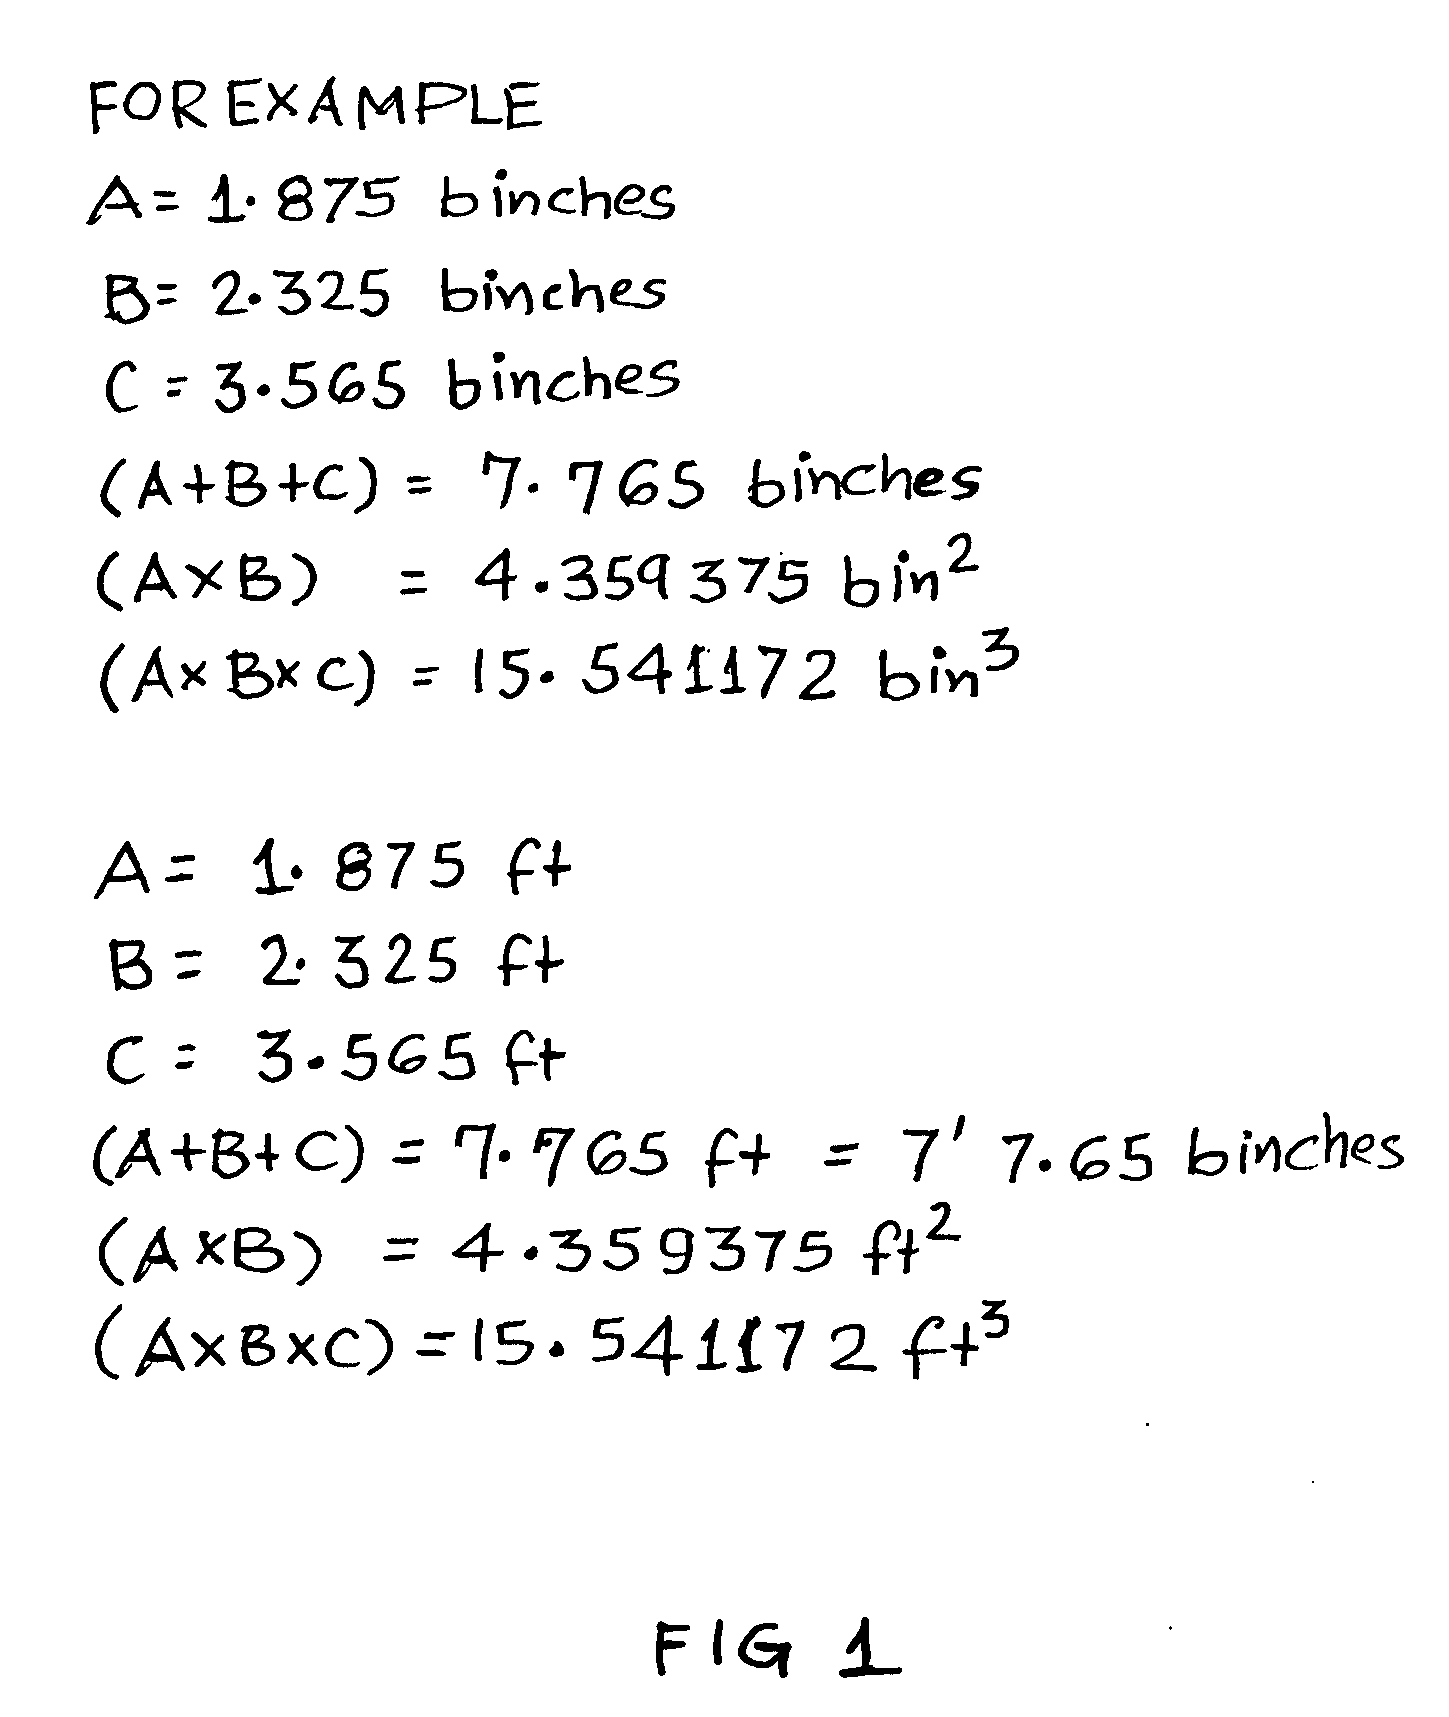 FOR EXAMPLE
A = 1.875 binches
B = 2.325 binches
C = 3.565 binches
(A+B+C) = 7.765 binches
(A×B) = 4.359375 bin²
(A×B×C) = 15.541172 bin³
A = 1.875 ft
B = 2.325 ft
C = 3.565 ft
(A+B+C) = 7.765 ft = 7' 7.65 binches
(A×B) = 4.359375 ft²
(A×B×C) = 15.541172 ft³
FIG 1